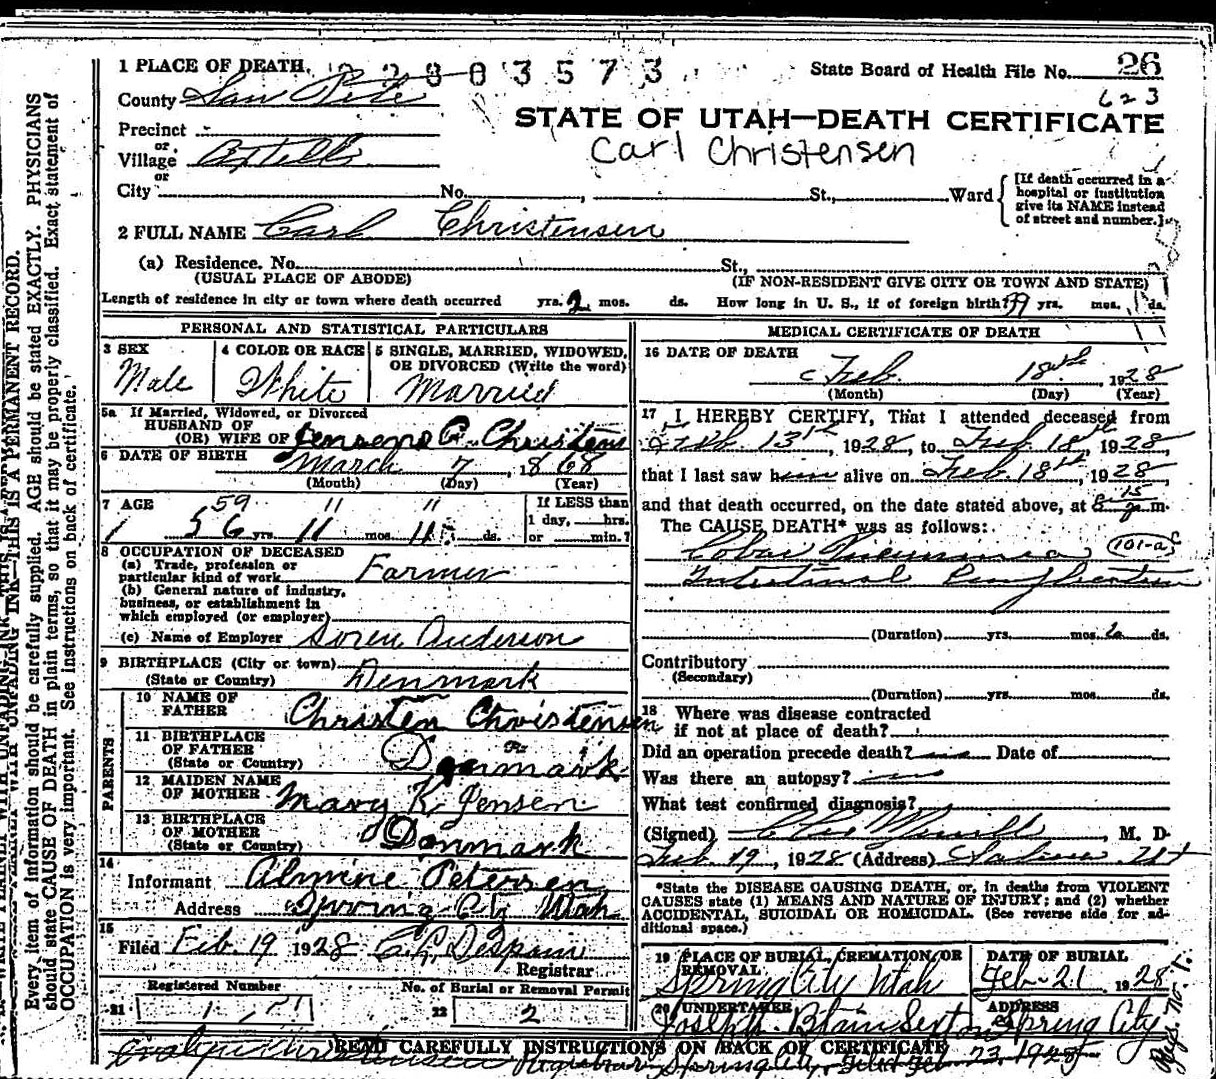 1 PLACE OF DEATH. 2803573
State Board of Health File No. 26
623
County San Pete
STATE OF UTAH—DEATH CERTIFICATE
Carl Christensen
Precinct
or
Village Axtell
or
City No. , St., Ward
[If death occurred in a hospital or institution give its NAME instead of street and number.]
2 FULL NAME Carl Christensen
(a) Residence. No. St.,
(USUAL PLACE OF ABODE) (IF NON-RESIDENT GIVE CITY OR TOWN AND STATE)
Length of residence in city or town where death occurred yrs. 2 mos. ds. How long in U. S., if of foreign birth? yrs. mos. ds.
PERSONAL AND STATISTICAL PARTICULARS
3 SEX
Male
4 COLOR OR RACE
White
5 SINGLE, MARRIED, WIDOWED, OR DIVORCED (Write the word)
Married
5a If Married, Widowed, or Divorced
HUSBAND OF
(OR) WIFE OF Christens
6 DATE OF BIRTH March 7, 1868
(Month) (Day) (Year)
7 AGE
59 11 11
56 yrs. 11 mos. 11 ds.
If LESS than
1 day, hrs.
or min.?
8 OCCUPATION OF DECEASED
(a) Trade, profession or
particular kind of work Farmer
(b) General nature of industry,
business, or establishment in
which employed (or employer)
(c) Name of Employer Soren Anderson
9 BIRTHPLACE (City or town)
(State or Country) Denmark
PARENTS
10 NAME OF
FATHER Christen Christensen
11 BIRTHPLACE
OF FATHER
(State or Country) Denmark
12 MAIDEN NAME
OF MOTHER Mary K Jensen
13 BIRTHPLACE
OF MOTHER
(State or Country) Denmark
14
Informant Almine Petersen
Address Spring City Utah
15
Filed Feb. 19 1928 Despain
Registrar
Registered Number No. of Burial or Removal Permit
21 1 22 2
MEDICAL CERTIFICATE OF DEATH
16 DATE OF DEATH
Feb. 18th, 1928
(Month) (Day) (Year)
17 I HEREBY CERTIFY, That I attended deceased from
Feb. 13th, 1928, to Feb. 18th, 1928,
that I last saw him alive on Feb. 18th, 1928
and that death occurred, on the date stated above, at 8 15 m.
The CAUSE DEATH* was as follows:
Lobar Pneumonia 101-a
Intestinal
(Duration) yrs. mos. ds.
Contributory
(Secondary)
(Duration) yrs. mos. ds.
18 Where was disease contracted
if not at place of death?
Did an operation precede death? no Date of
Was there an autopsy?
What test confirmed diagnosis?
(Signed) Merrill, M. D.
Feb 19, 1928 (Address) Salina Ut
*State the DISEASE CAUSING DEATH, or, in deaths from VIOLENT CAUSES state (1) MEANS AND NATURE OF INJURY; and (2) whether ACCIDENTAL, SUICIDAL OR HOMICIDAL. (See reverse side for additional space.)
19 PLACE OF BURIAL, CREMATION, OR REMOVAL
Spring City Utah
DATE OF BURIAL
Feb-21 1928
20 UNDERTAKER
Joseph Blain Sexton
ADDRESS
Spring City
READ CAREFULLY INSTRUCTIONS ON BACK OF CERTIFICATE
Registrar Spring City, Filed Feb 23, 1928
Every item of information should be carefully supplied. AGE should be stated EXACTLY. PHYSICIANS
should state CAUSE OF DEATH in plain terms, so that it may be properly classified. Exact statement of
OCCUPATION is very important. See instructions on back of certificate.